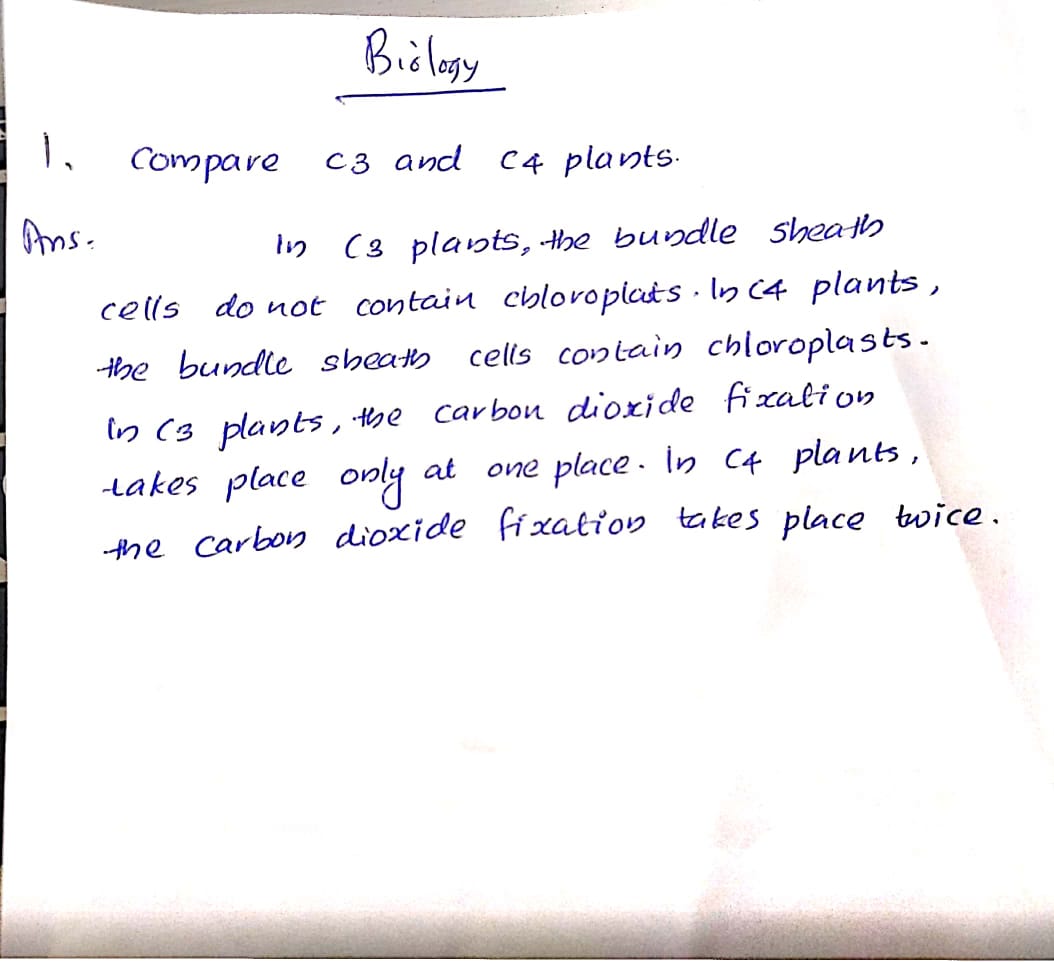 Biology
1. Compare C3 and C4 plants.
Ans. In C3 plants, the bundle sheath
cells do not contain chloroplats. In C4 plants,
the bundle sheath cells contain chloroplasts.
In C3 plants, the carbon dioxide fixation
takes place only at one place. In C4 plants,
the carbon dioxide fixation takes place twice.